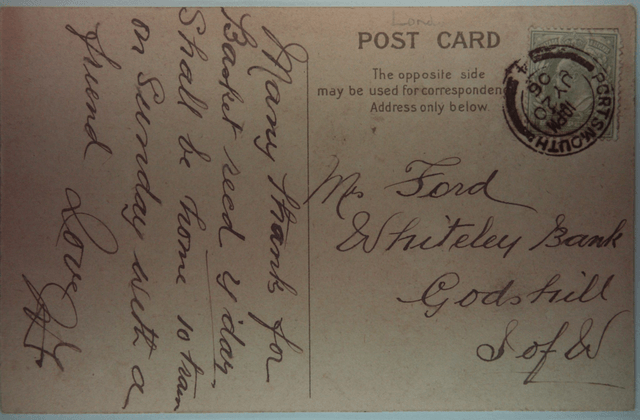 Land
POST CARD
The opposite side
may be used for correspondence
Address only below.
PORTSMOUTH
10 PM
JY 20
06
Many thanks for
Basket recd y'day
Shall be home 10 train
on Sunday with a
friend Love
Mrs Ford
Whiteley Bank
Godshill
I of W